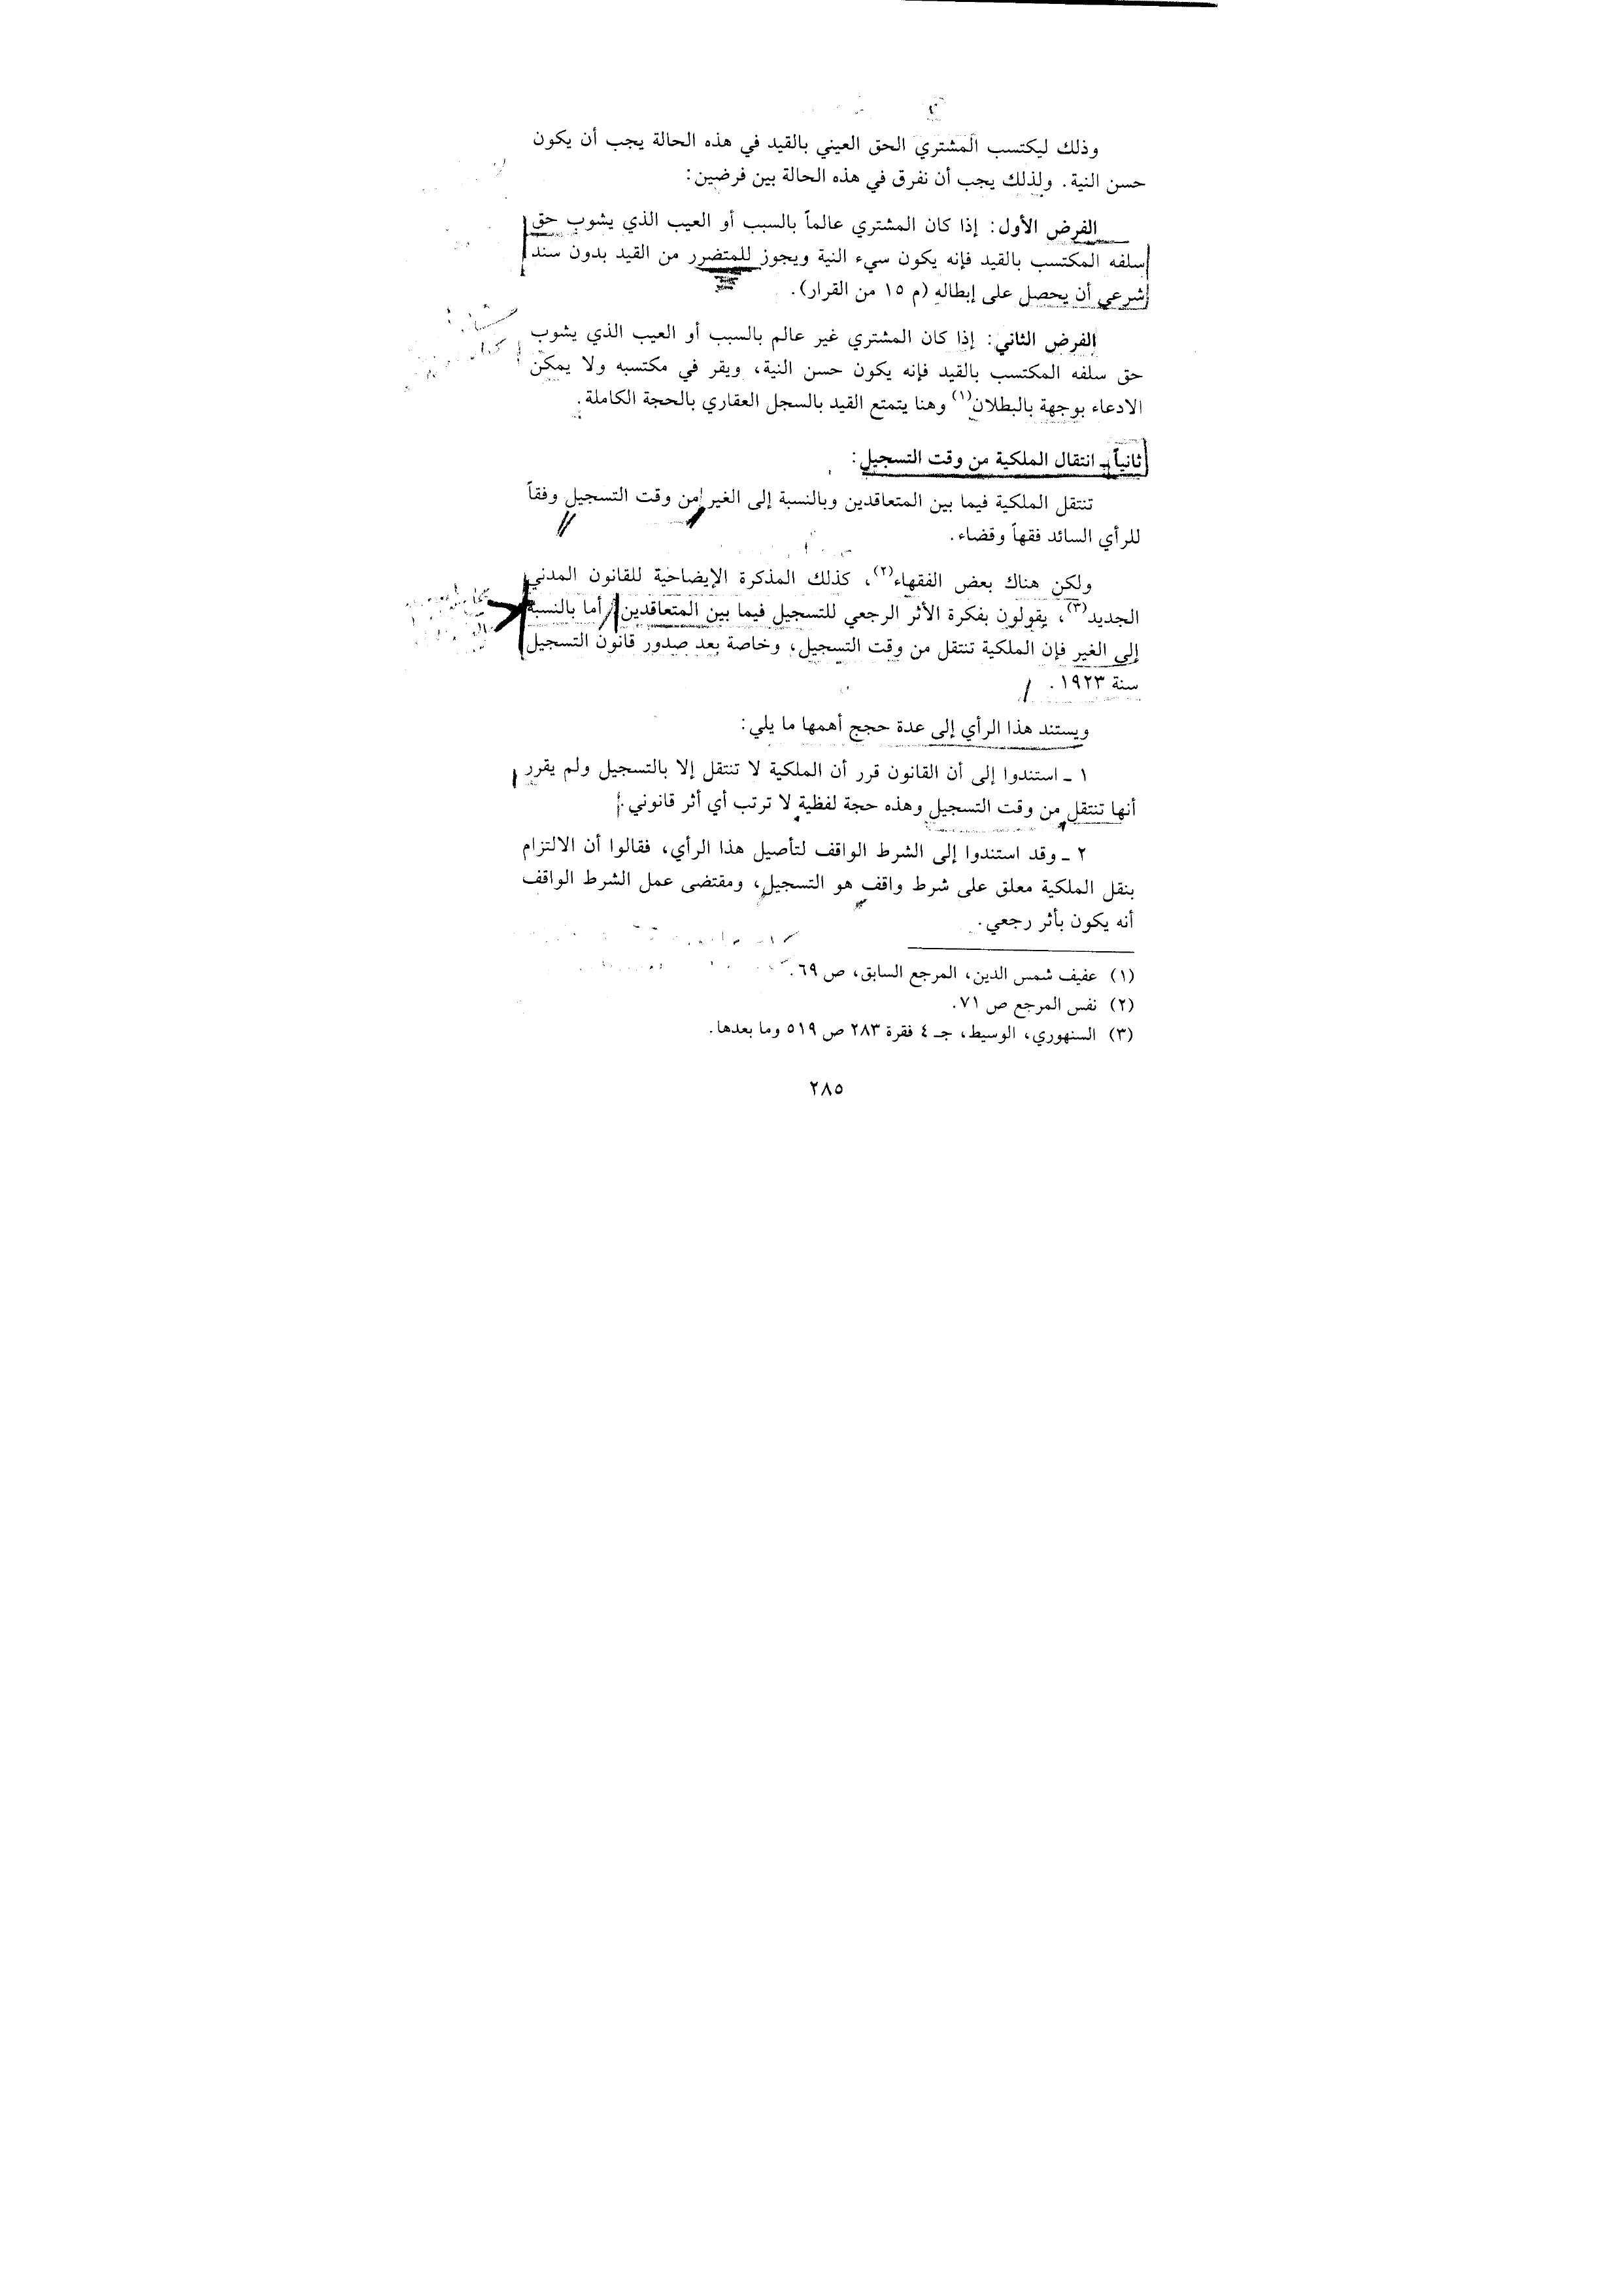 وذلك ليكتسب المشتري الحق العيني بالقيد في هذه الحالة يجب أن يكون
حسن النية. ولذلك يجب أن نفرق في هذه الحالة بين فرضين:
الفرض الأول: إذا كان المشتري عالماً بالسبب أو العيب الذي يشوب حق
سلفه المكتسب بالقيد فإنه يكون سيء النية ويجوز للمتضرر من القيد بدون سند
شرعي أن يحصل على إبطاله (م ١٥ من القرار).
الفرض الثاني: إذا كان المشتري غير عالم بالسبب أو العيب الذي يشوب
حق سلفه المكتسب بالقيد فإنه يكون حسن النية، ويقر في مكتسبه ولا يمكن
الادعاء بوجهة بالبطلان(١) وهنا يتمتع القيد بالسجل العقاري بالحجة الكاملة.
ثانياً ـ انتقال الملكية من وقت التسجيل:
تنتقل الملكية فيما بين المتعاقدين وبالنسبة إلى الغير من وقت التسجيل وفقاً
للرأي السائد فقهاً وقضاء.
ولكن هناك بعض الفقهاء(٢)، كذلك المذكرة الإيضاحية للقانون المدني
الجديد(٣)، يقولون بفكرة الأثر الرجعي للتسجيل فيما بين المتعاقدين أما بالنسبة
إلى الغير فإن الملكية تنتقل من وقت التسجيل، وخاصة بعد صدور قانون التسجيل
سنة ١٩٢٣.
ويستند هذا الرأي إلى عدة حجج أهمها ما يلي:
١ ـ استندوا إلى أن القانون قرر أن الملكية لا تنتقل إلا بالتسجيل ولم يقرر
أنها تنتقل من وقت التسجيل وهذه حجة لفظية لا ترتب أي أثر قانوني.
٢ ـ وقد استندوا إلى الشرط الواقف لتأصيل هذا الرأي، فقالوا أن الالتزام
بنقل الملكية معلق على شرط واقف هو التسجيل، ومقتضى عمل الشرط الواقف
أنه يكون بأثر رجعي.
(١) عفيف شمس الدين، المرجع السابق، ص ٦٩.
(٢) نفس المرجع ص ٧١.
(٣) السنهوري، الوسيط، جـ ٤ فقرة ٢٨٣ ص ٥١٩ وما بعدها.
٢٨٥